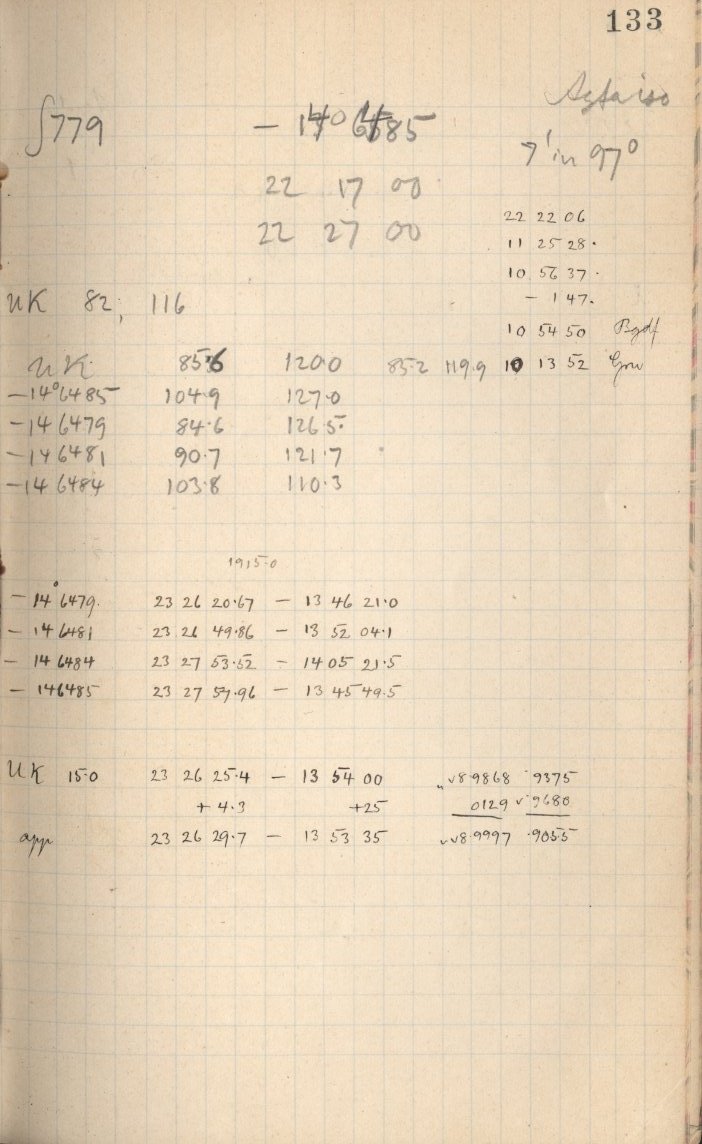 133
Agfa iso
∫779 - 14° 6485
7' in 97°
22 17 00
22 27 00
22 22 06
11 25 28.
10 56 37.
- 1 47.
10 54 50 Bgdf
UK 82; 116
UK 85.6 120.0 85.2 119.9 10 13 52 Grw
-14°6485 104.9 127.0
-14 6479 84.6 126.5
-14 6481 90.7 121.7
-14 6484 103.8 110.3
1915.0
-14°6479 23 26 20.67 - 13 46 21.0
-14 6481 23 26 49.86 - 13 52 04.1
-14 6484 23 27 53.52 - 14 05 21.5
-14 6485 23 27 57.96 - 13 45 49.5
UK 15.0 23 26 25.4 - 13 54 00 8.9868 .9375
+ 4.3 +25 0129 .9680
app 23 26 29.7 - 13 53 35 8.9997 .9055